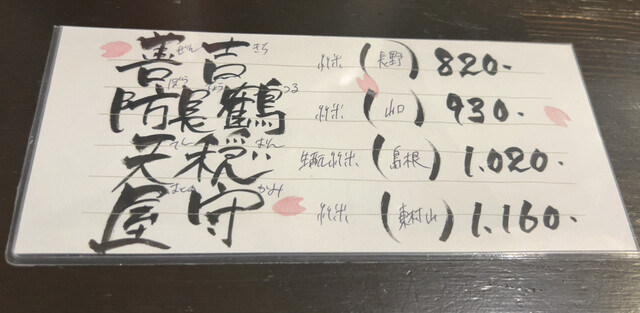 善吉 ぜん きち 純米 (長野) 820-
防長鶴 ぼう ちょう つる 純米 (山口) 930-
天穏 てん おん 生酛純米 (島根) 1.020-
屋守 おく かみ 純米 (東村山) 1.160-